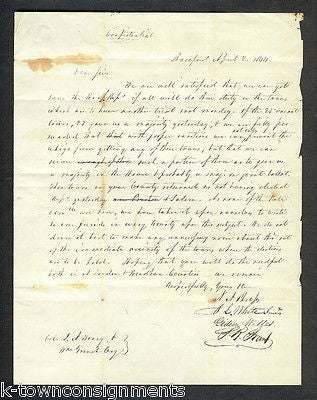 Confidential
Hartford April 2. 1844.
Dear Sir.
We are well satisfied that we can yet
save the House of Rep.s if all will do their duty in the towns
where we have another trial next monday. Of the
towns, 23 gave us a majority yesterday, & we are fully per-
suaded that with proper exertions we can prevent the
whigs from getting any of these towns, but that we can
secure such a portion of them as to give us
a majority in the House & probably a major on joint ballot.
The towns in your County returned as not having elected
Rep.s yesterday are & Salem. As none of the
are here, we have taken it upon ourselves to write
to our friends in every County upon this subject. We do
not deem it best to make any unnecessary noise about this out
of the immediate vicinity of the towns when the elections
are to be held. Hoping that you will do the needful
both in N London & Windham Counties. we remain
Respectfully, Yours &c
Gideon Welles
Col. J. A. Hovey, &
Wm Esq.
k-townconsignments